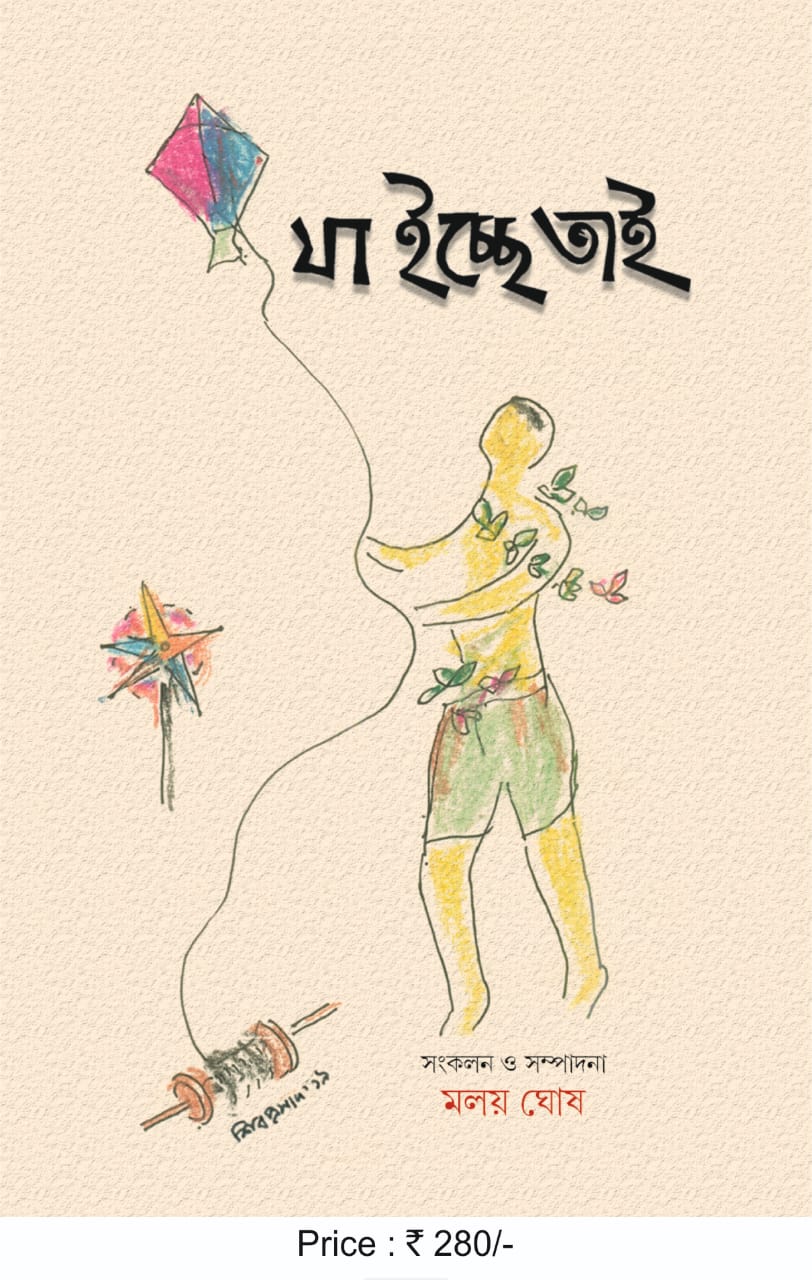 যা ইচ্ছে তাই
সংকলন ও সম্পাদনা
মলয় ঘোষ
শিবপ্রসাদ '১৯
Price : ₹ 280/-